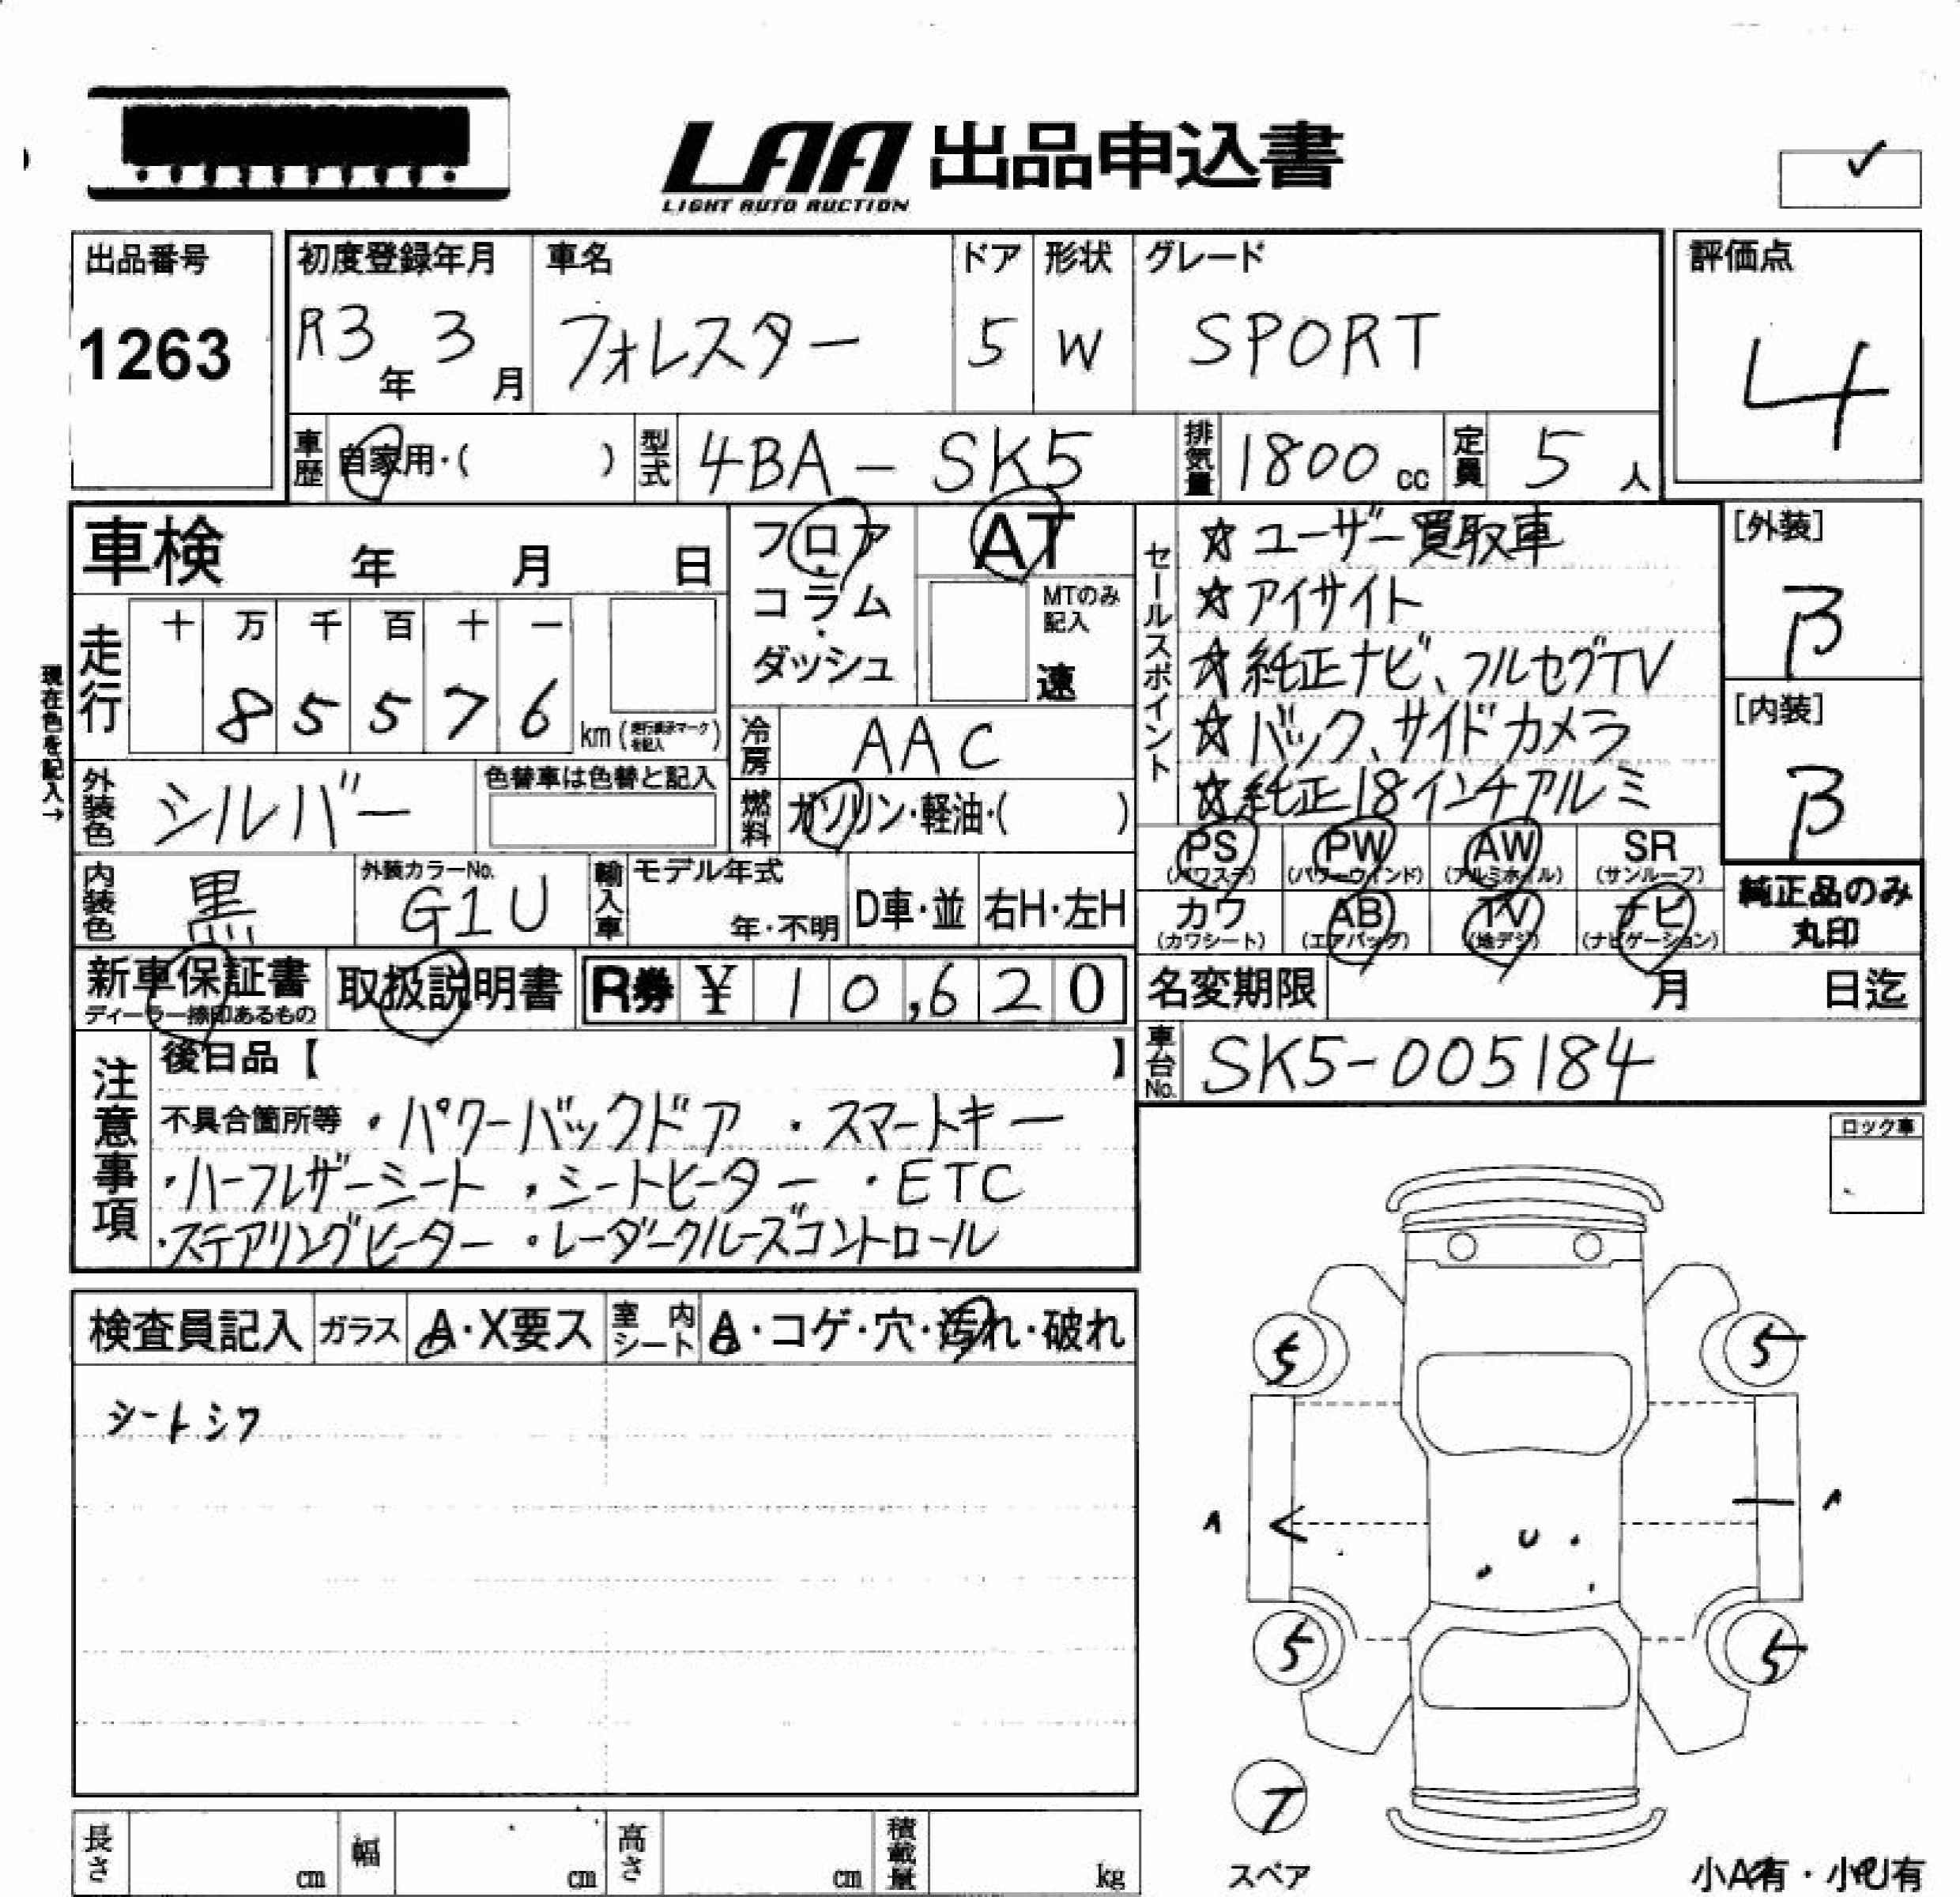 LAA 出品申込書
LIGHT AUTO AUCTION
✓
出品番号
1263
初度登録年月
R3年 3月
車名
フォレスター
ドア
5
形状
W
グレード
SPORT
評価点
4
車歴 自家用・( )
型式 4BA - SK5
排気量 1800 cc
定員 5 人
車検 年 月 日
フロア・コラム・ダッシュ
AT
MTのみ記入
速
セールスポイント
☆ユーザー買取車
☆アイサイト
☆純正ナビ、フルセグTV
☆バック、サイドカメラ
☆純正18インチアルミ
[外装]
B
[内装]
B
現在色を記入→
走行 十 万 千 百 十 一
8 5 5 7 6 km (走行表示マークを記入)
冷房 AAC
外装色 シルバー
色替車は色替と記入
燃料 ガソリン・軽油・( )
内装色 黒
外装カラーNo.
G1U
輸入車 モデル年式
年・不明
D車・並 右H・左H
PS (パワステ)
PW (パワーウィンド)
AW (アルミホイル)
SR (サンルーフ)
カワ (カワシート)
AB (エアバッグ)
TV (地デジ)
ナビ (ナビゲーション)
純正品のみ
丸印
新車保証書
ディーラー捺印あるもの
取扱説明書
R券 ¥ 10,620
名変期限 月 日迄
車台No. SK5-005184
注意事項
後日品【 】
不具合箇所等 ・パワーバックドア ・スマートキー
・ハーフレザーシート ・シートヒーター ・ETC
・ステアリングヒーター ・レーダークルーズコントロール
ロック車
検査員記入 ガラス A・X要ス 室内シート A・コゲ・穴・汚れ・破れ
シートシワ
5 5
A A
U
5 5
7
スペア
小A有・小U有
長さ cm 幅 cm 高さ cm 積載量 kg